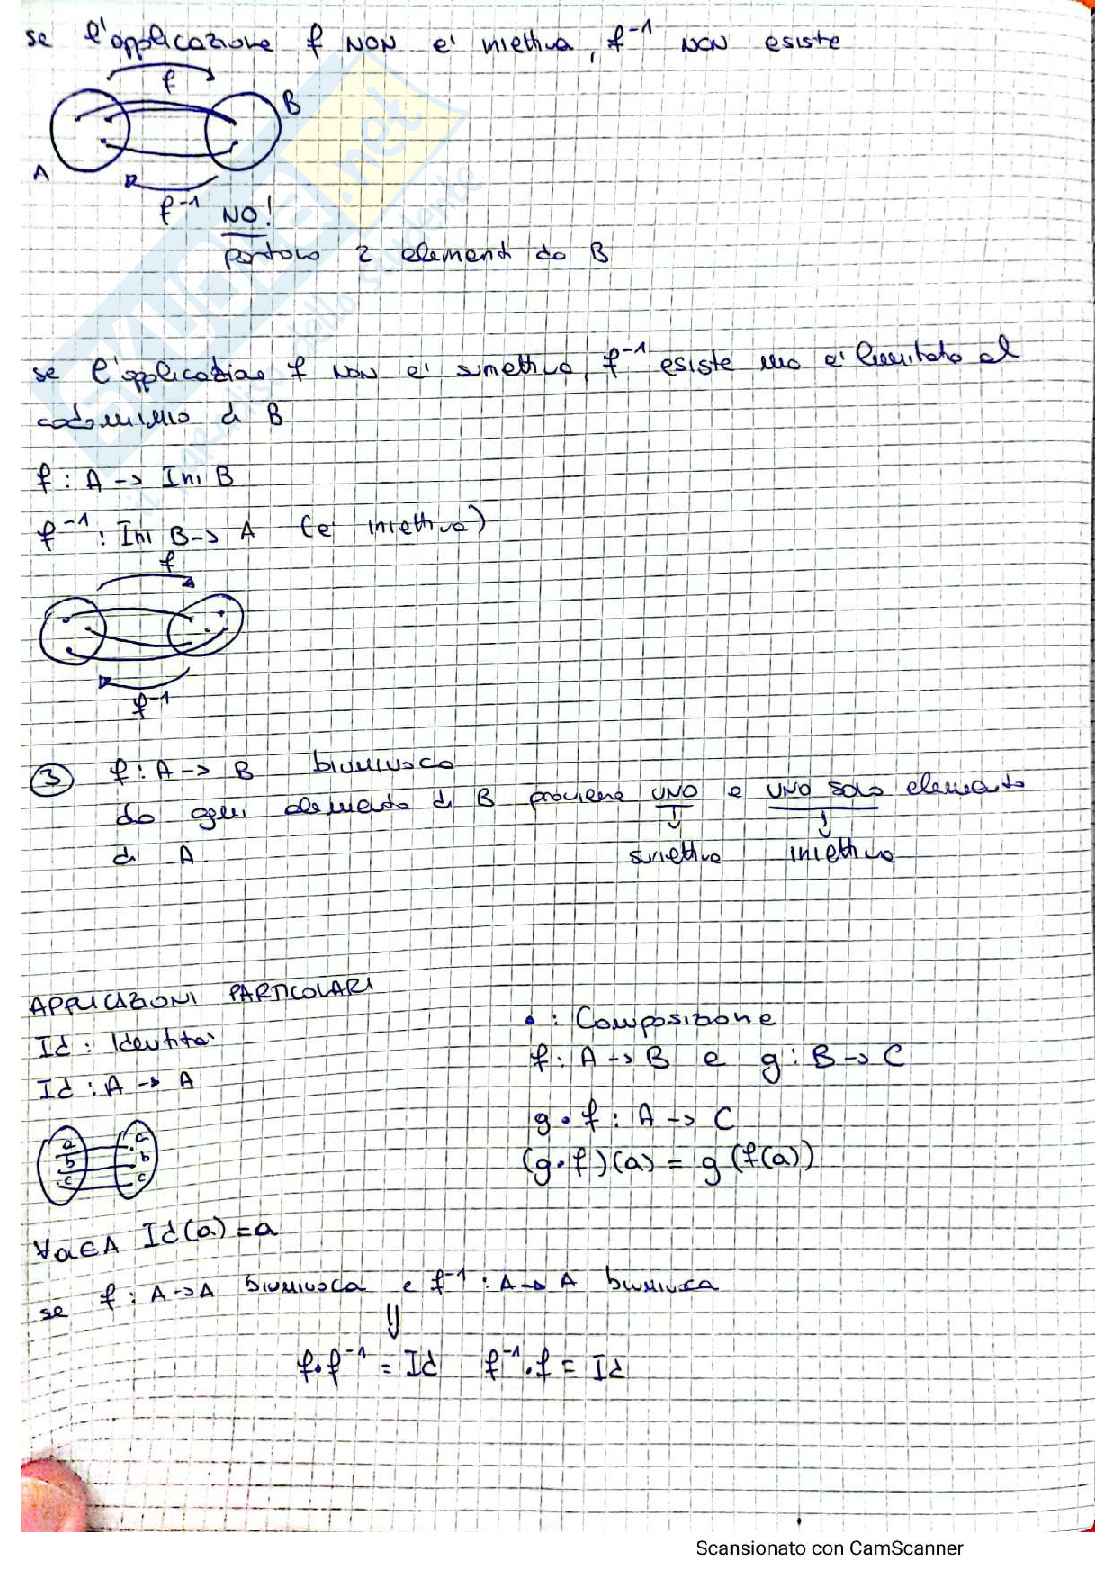 se l'applicazione f NON e' iniettiva, f⁻¹ NON esiste
f
A
B
f⁻¹ NO!
partono 2 elementi da B
se l'applicazione f NON e' suriettiva, f⁻¹ esiste ma e' limitato al
codominio di B
f : A -> Im B
f⁻¹ : Im B -> A (e' iniettiva)
f
f⁻¹
③ f : A -> B biunivoca
da ogni elemento di B proviene UNO e UNO solo elemento
di A
suriettiva iniettiva
APPLICAZIONI PARTICOLARI
Id : Identita'
Id : A -> A
a a
b b
c c
∀a∈A Id(a) = a
• : Composizione
f : A -> B e g : B -> C
g • f : A -> C
(g • f)(a) = g(f(a))
se f : A -> A biunivoca e f⁻¹ : A -> A biunivoca
⇓
f • f⁻¹ = Id f⁻¹ • f = Id
Scansionato con CamScanner